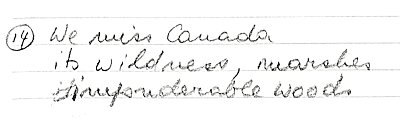 (14) We miss Canada
its wildness, marshes
imponderable woods